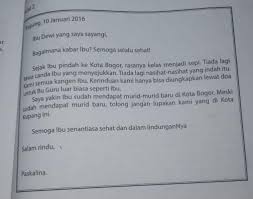 Kupang, 10 Januari 2016
Ibu Dewi yang saya sayangi,
Bagaimana kabar Ibu? Semoga selalu sehat!
Sejak Ibu pindah ke Kota Bogor, rasanya kelas menjadi sepi. Tiada lagi
canda Ibu yang menyejukkan. Tiada lagi nasihat-nasihat yang indah itu.
Kami semua kangen Ibu. Kerinduan kami hanya bisa diungkapkan lewat doa
untuk Bu Guru luar biasa seperti Ibu.
Saya yakin Ibu sudah mendapat murid-murid baru di Kota Bogor. Meski
sudah mendapat murid baru, tolong jangan lupakan kami yang di Kota
Kupang ini.
Semoga Ibu senantiasa sehat dan dalam lindunganNya
Salam rindu,
Paskalina.